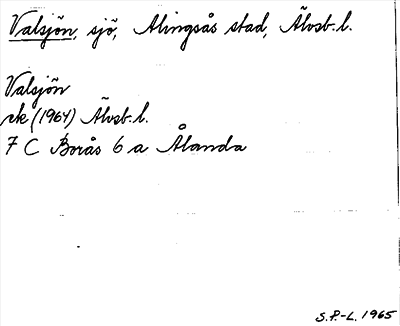 Valsjön, sjö, Alingsås stad, Älvsb. l.
Valsjön
ek (1964) Älvsb. l.
7 C Borås 6 a Ålanda
S.P.-L. 1965